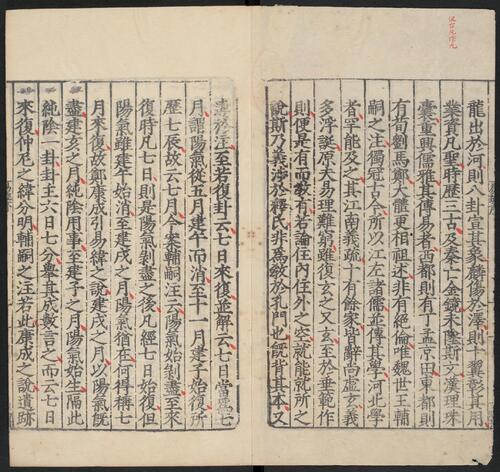 汲古凡作九
龍出於河則八卦宣其象麟傷於澤則十翼彰其用
業資凡聖時歷三古及秦亡金鏡未墜斯文漢理珠
囊重興儒雅其傳易者西都則有丁孟京田東都則
有荀劉馬鄭大體更相祖述非有絕倫唯魏世王輔
嗣之注獨冠古今所以江左諸儒並傳其學河北學
者罕能及之其江南義疏十有餘家皆辭尚虛玄義
多浮誕原夫易理難窮雖復玄之又玄至於垂範作
則便是有而教有若論住內住外之空就能就所之
說斯乃義涉於釋氏非為教於孔門也既背其本又
違於注至若復卦云七日來復並解云七日當為七
月謂陽氣從五月建午而消至十一月建子始復所
歷七辰故云七月今案輔嗣注云陽氣始剝盡至來
復時凡七日則是陽氣剝盡之後凡經七日始復但
陽氣雖建午始消至建戌之月陽氣猶在何得稱七
月來復故鄭康成引易緯之說建戌之月以陽氣既
盡建亥之月純陰用事至建子之月陽氣始生隔此
純陰一卦卦主六日七分舉其成數言之而云七日
來復仲尼之緯分明輔嗣之注若此康成之說遺跡